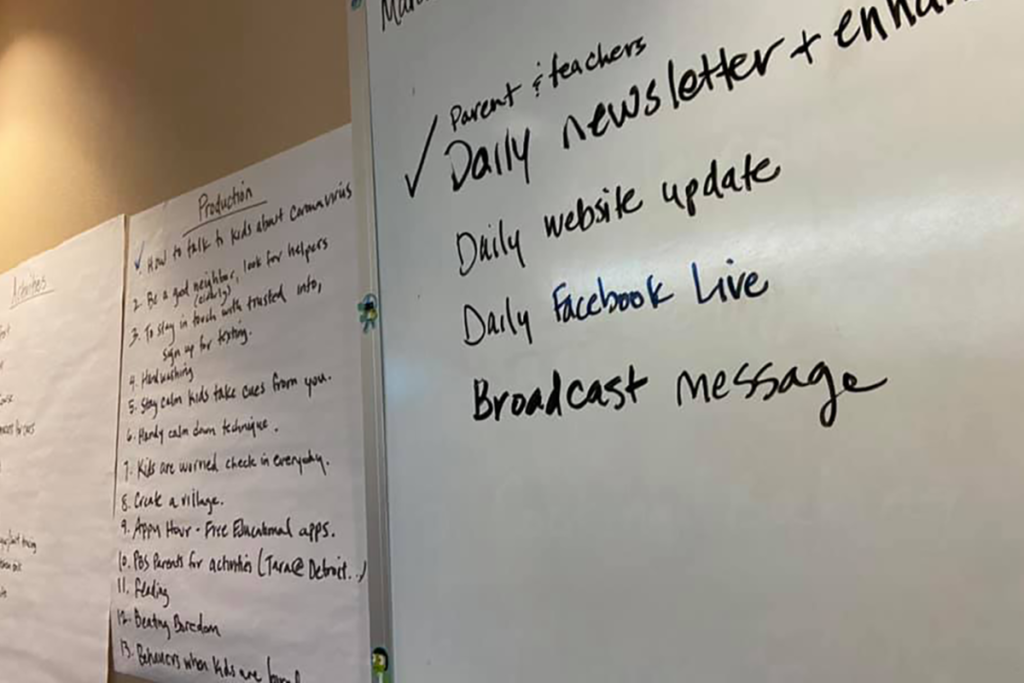 Activities
Production
1. How to talk to kids about coronavirus
2. Be a good neighbor, look for helpers
(elderly)
3. To stay in touch with trusted info,
sign up for texting.
4. Handwashing
5. Stay calm kids take cues from you.
6. Handy calm down technique.
7. Kids are worried check in everyday.
8. Create a village.
9. Appy Hour - Free Educational apps.
10. PBS Parents for activities (Tara@Detroit..)
11. Reading
12. Beating Boredom
13. Behaviors when kids are
✓ Parent & teachers
Daily newsletter +
Daily website update
Daily Facebook Live
Broadcast message